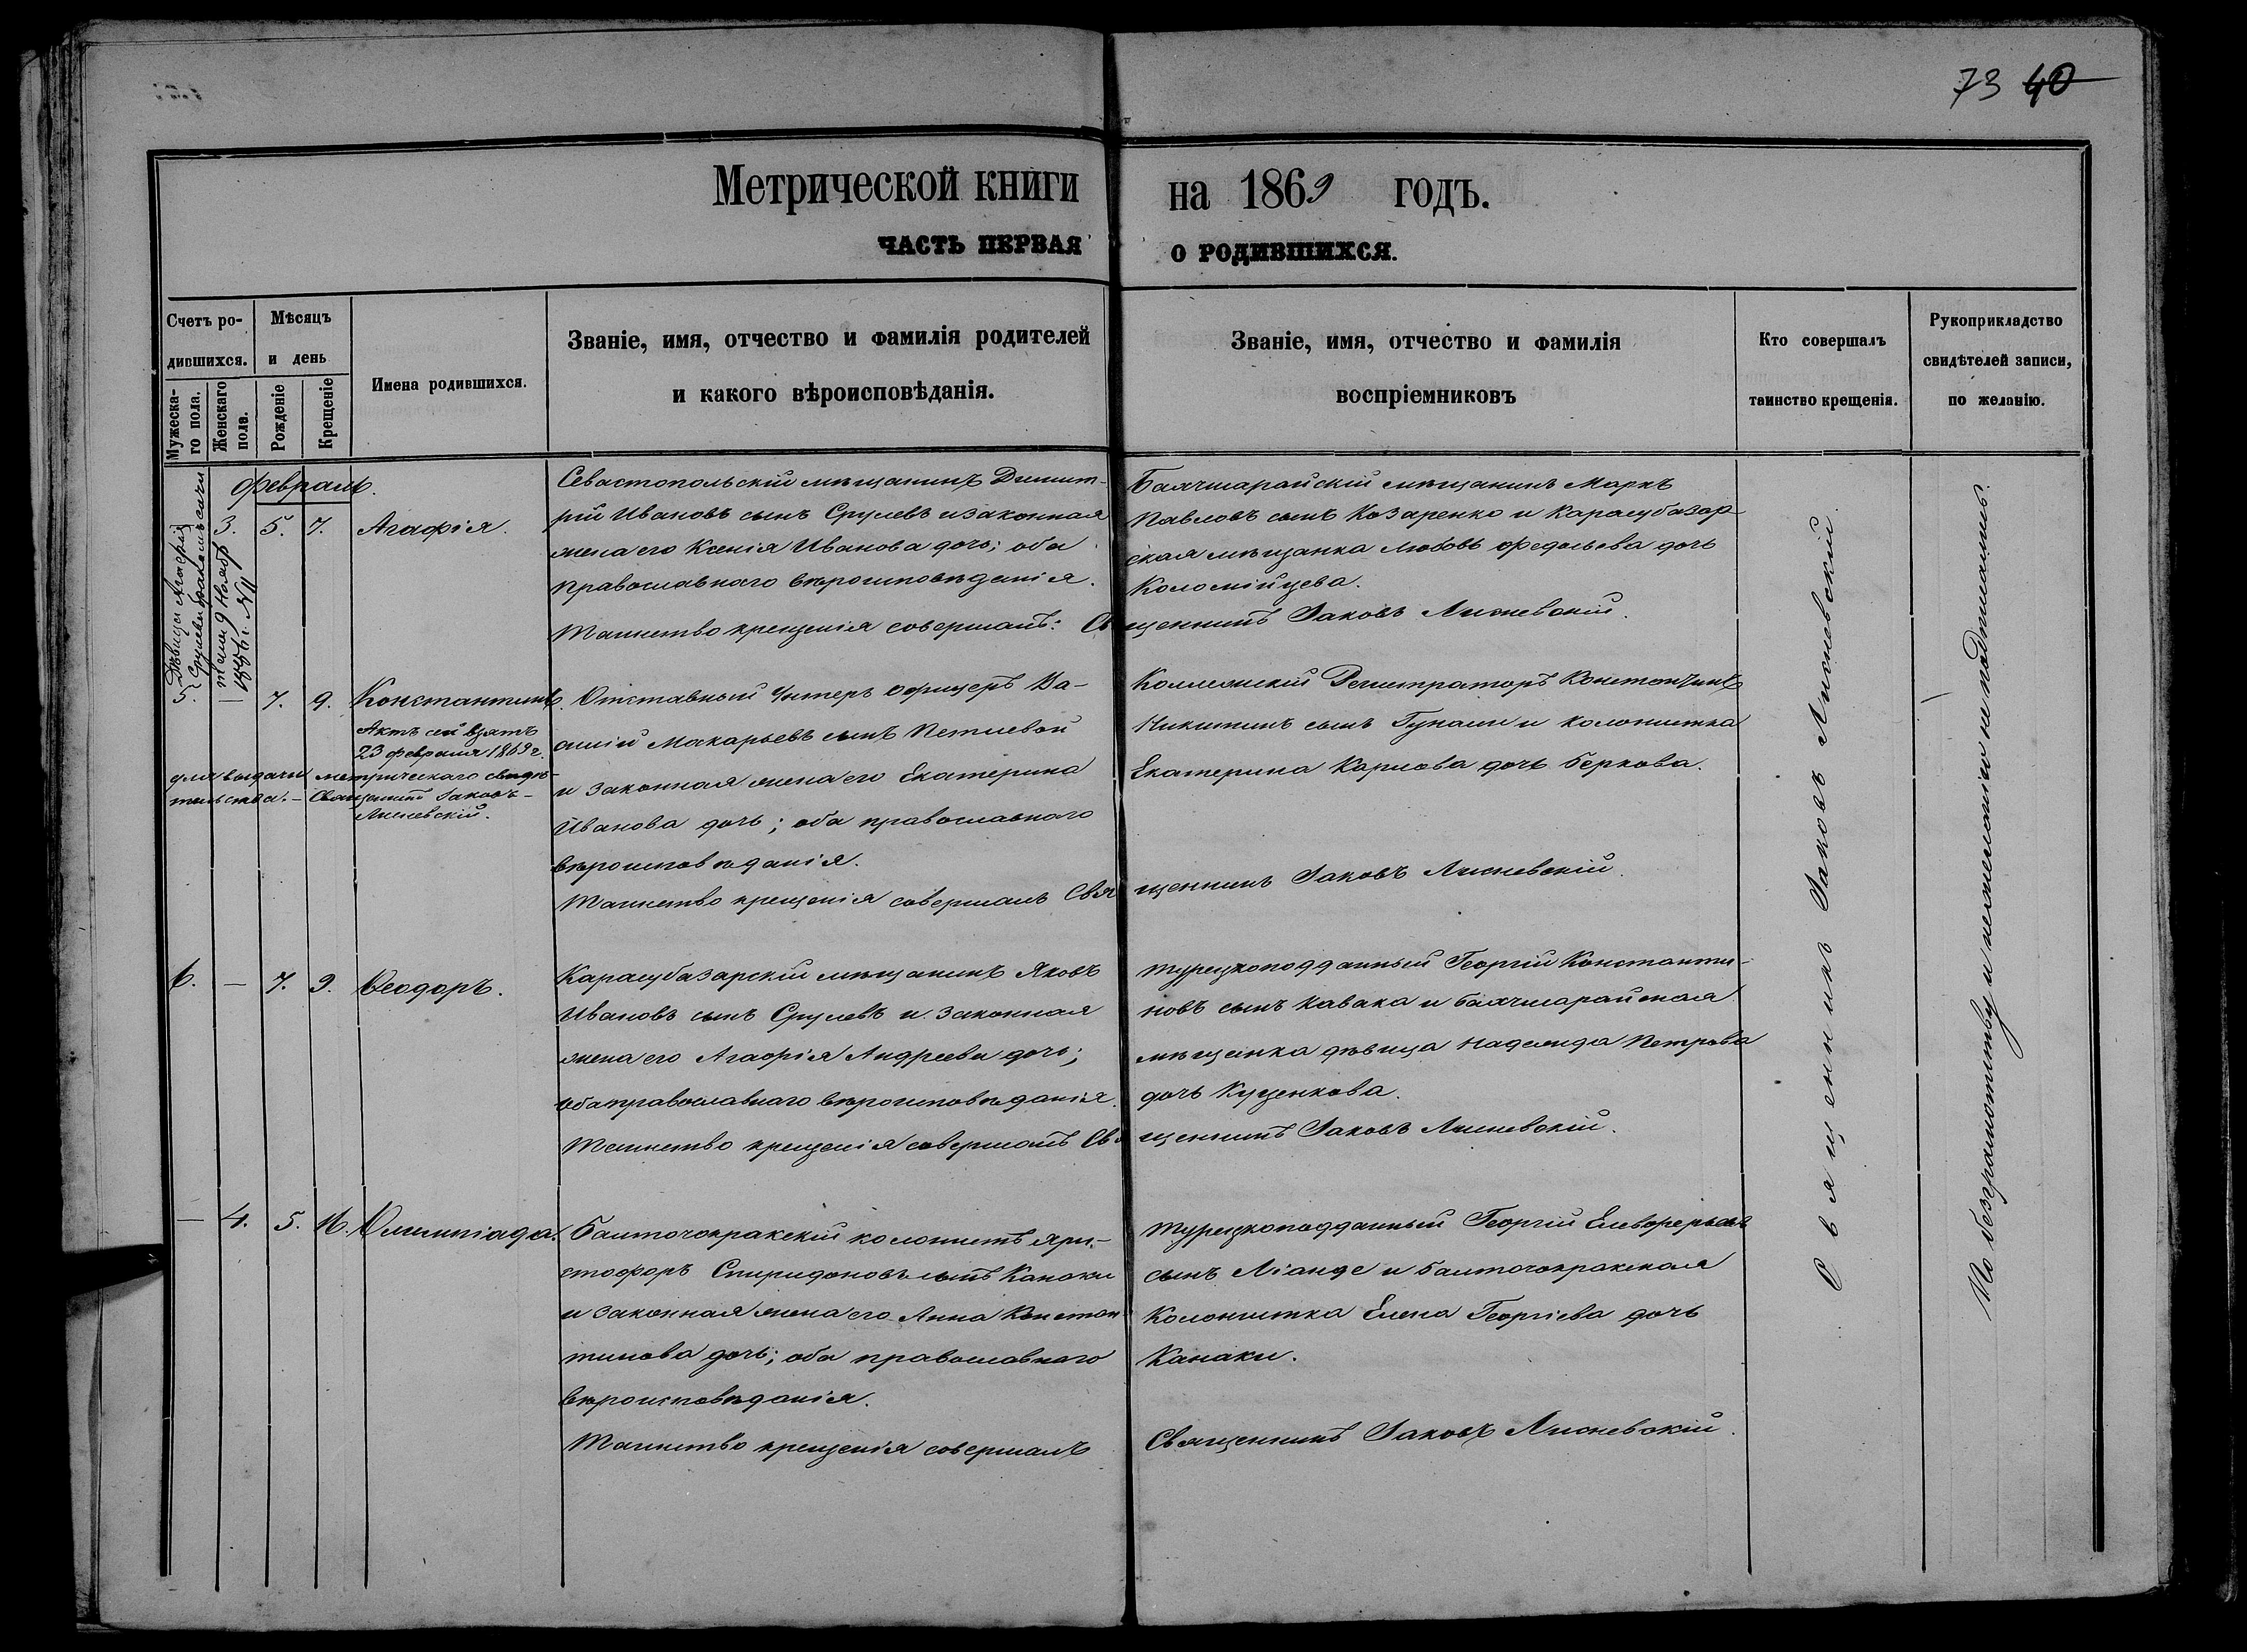 73 40
Метрической книги на 1869 годъ.
ЧАСТЬ ПЕРВАЯ О РОДИВШИХСЯ.
Счетъ ро-
дившихся.
Мужеска-
го пола.
Женскаго
пола.
Мѣсяцъ
и день
Рожденіе
Крещеніе
Имена родившихся.
Званіе, имя, отчество и фамилія родителей
и какого вѣроисповѣданія.
Званіе, имя, отчество и фамилія
воспріемниковъ
Кто совершалъ
таинство крещенія.
Рукоприкладство
свидѣтелей записи,
по желанію.
Февраль.
3. 5. 7. Агафія.
Севастопольскій мѣщанинъ Димит-
рій Ивановъ сынъ Срулевъ и законная
жена его Ксенія Иванова дочь; оба
православнаго вѣроисповѣданія.
Таинство крещенія совершалъ: Свя
Бахчисарайскій мѣщанинъ Маркъ
Павловъ сынъ Козаренко и Карасубазар-
ская мѣщанка Любовь дочь
Коломійцева.
щенникъ Іаковъ Лисневскій.
Дѣвицы Агафіи
9 Нояб
5. — 7. 9. Константинъ.
Актъ сей взятъ
23 февраля 1869 г.
для выдачи метрическаго свидѣ-
тельства. — Священникъ Іаковъ
Лисневскій.
Отставный Унтеръ Офицеръ Ва-
силій Макарьевъ сынъ
и законная жена его Екатерина
Иванова дочь; оба православнаго
вѣроисповѣданія.
Таинство крещенія совершалъ Свя
Коллежскій Регистраторъ Константинъ
Никитинъ сынъ Гупали и колонистка
Екатерина Карлова дочь Беркова.
щенникъ Іаковъ Лисневскій.
6. — 7. 9. Ѳеодоръ.
Карасубазарскій мѣщанинъ Яковъ
Ивановъ сынъ Срулевъ и законная
жена его Агафія Андреева дочь;
оба православнаго вѣроисповѣданія.
Таинство крещенія совершалъ Свя
Турецкоподданный Георгій Константи-
новъ сынъ Кавака и Бахчисарайская
мѣщанка дѣвица Надежда Петрова
дочь Куценкова.
щенникъ Іаковъ Лисневскій.
— 4. 5. 16. Олимпіада.
Балточокракскій колонистъ Хри-
стофоръ Спиридоновъ сынъ Канаки
и законная жена его Анна Констан-
тинова дочь; оба православнаго
вѣроисповѣданія.
Таинство крещенія совершалъ
Турецкоподданный Георгій
сынъ и Балточокракская
Колонистка Елена Георгіева дочь
Канаки.
Священникъ Іаковъ Лисневскій.
Священникъ Іаковъ Лисневскій.
По безграмотству и нежеланію не подписались.